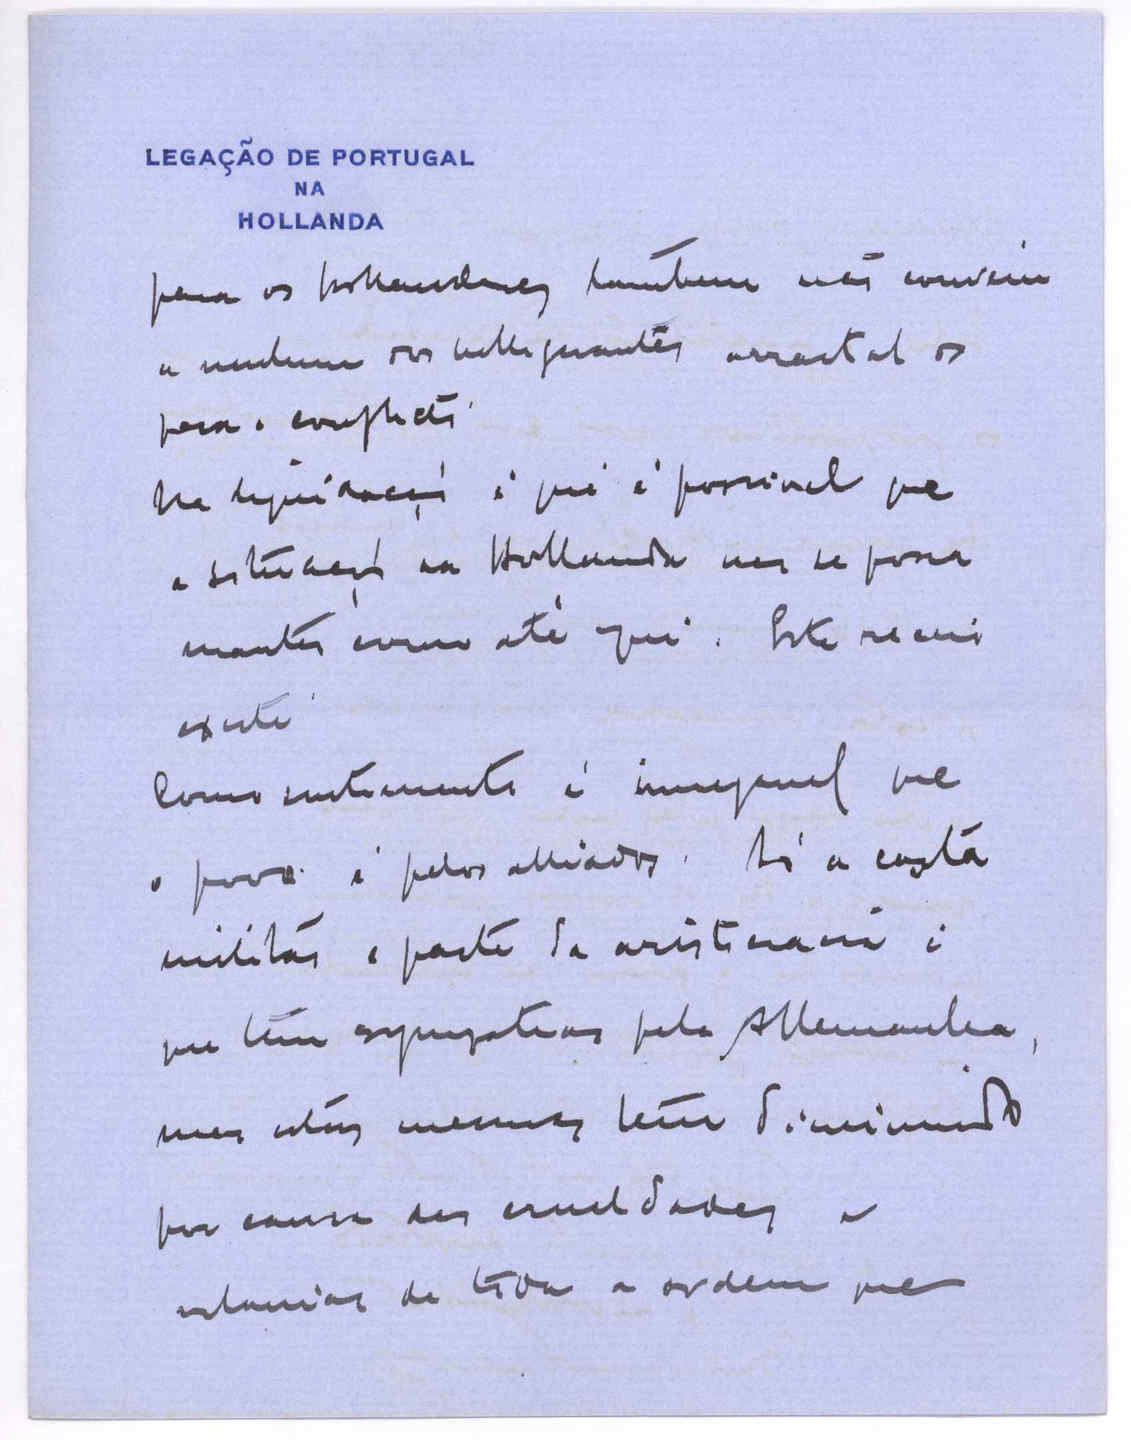 LEGAÇÃO DE PORTUGAL
NA
HOLLANDA
para os hollandezes tambem não convem
a nenhum dos belligerantes arrastal os
para o conflicto.
Na liquidação é que é possivel que
a situação da Hollanda não se possa
manter como até aqui. Este receio
existe.
Como sentimento é innegavel que
o povo é pelos alliados. Só a casta
militar e parte da aristocracia é
que têm sympatias pela Allemanha,
mas estas mesmas têm diminuido
por causa das crueldades e
infamias de toda a ordem que